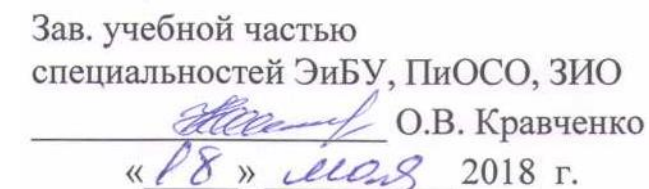 Зав. учебной частью
специальностей ЭиБУ, ПиОСО, ЗИО
О.В. Кравченко
«18» мая 2018 г.